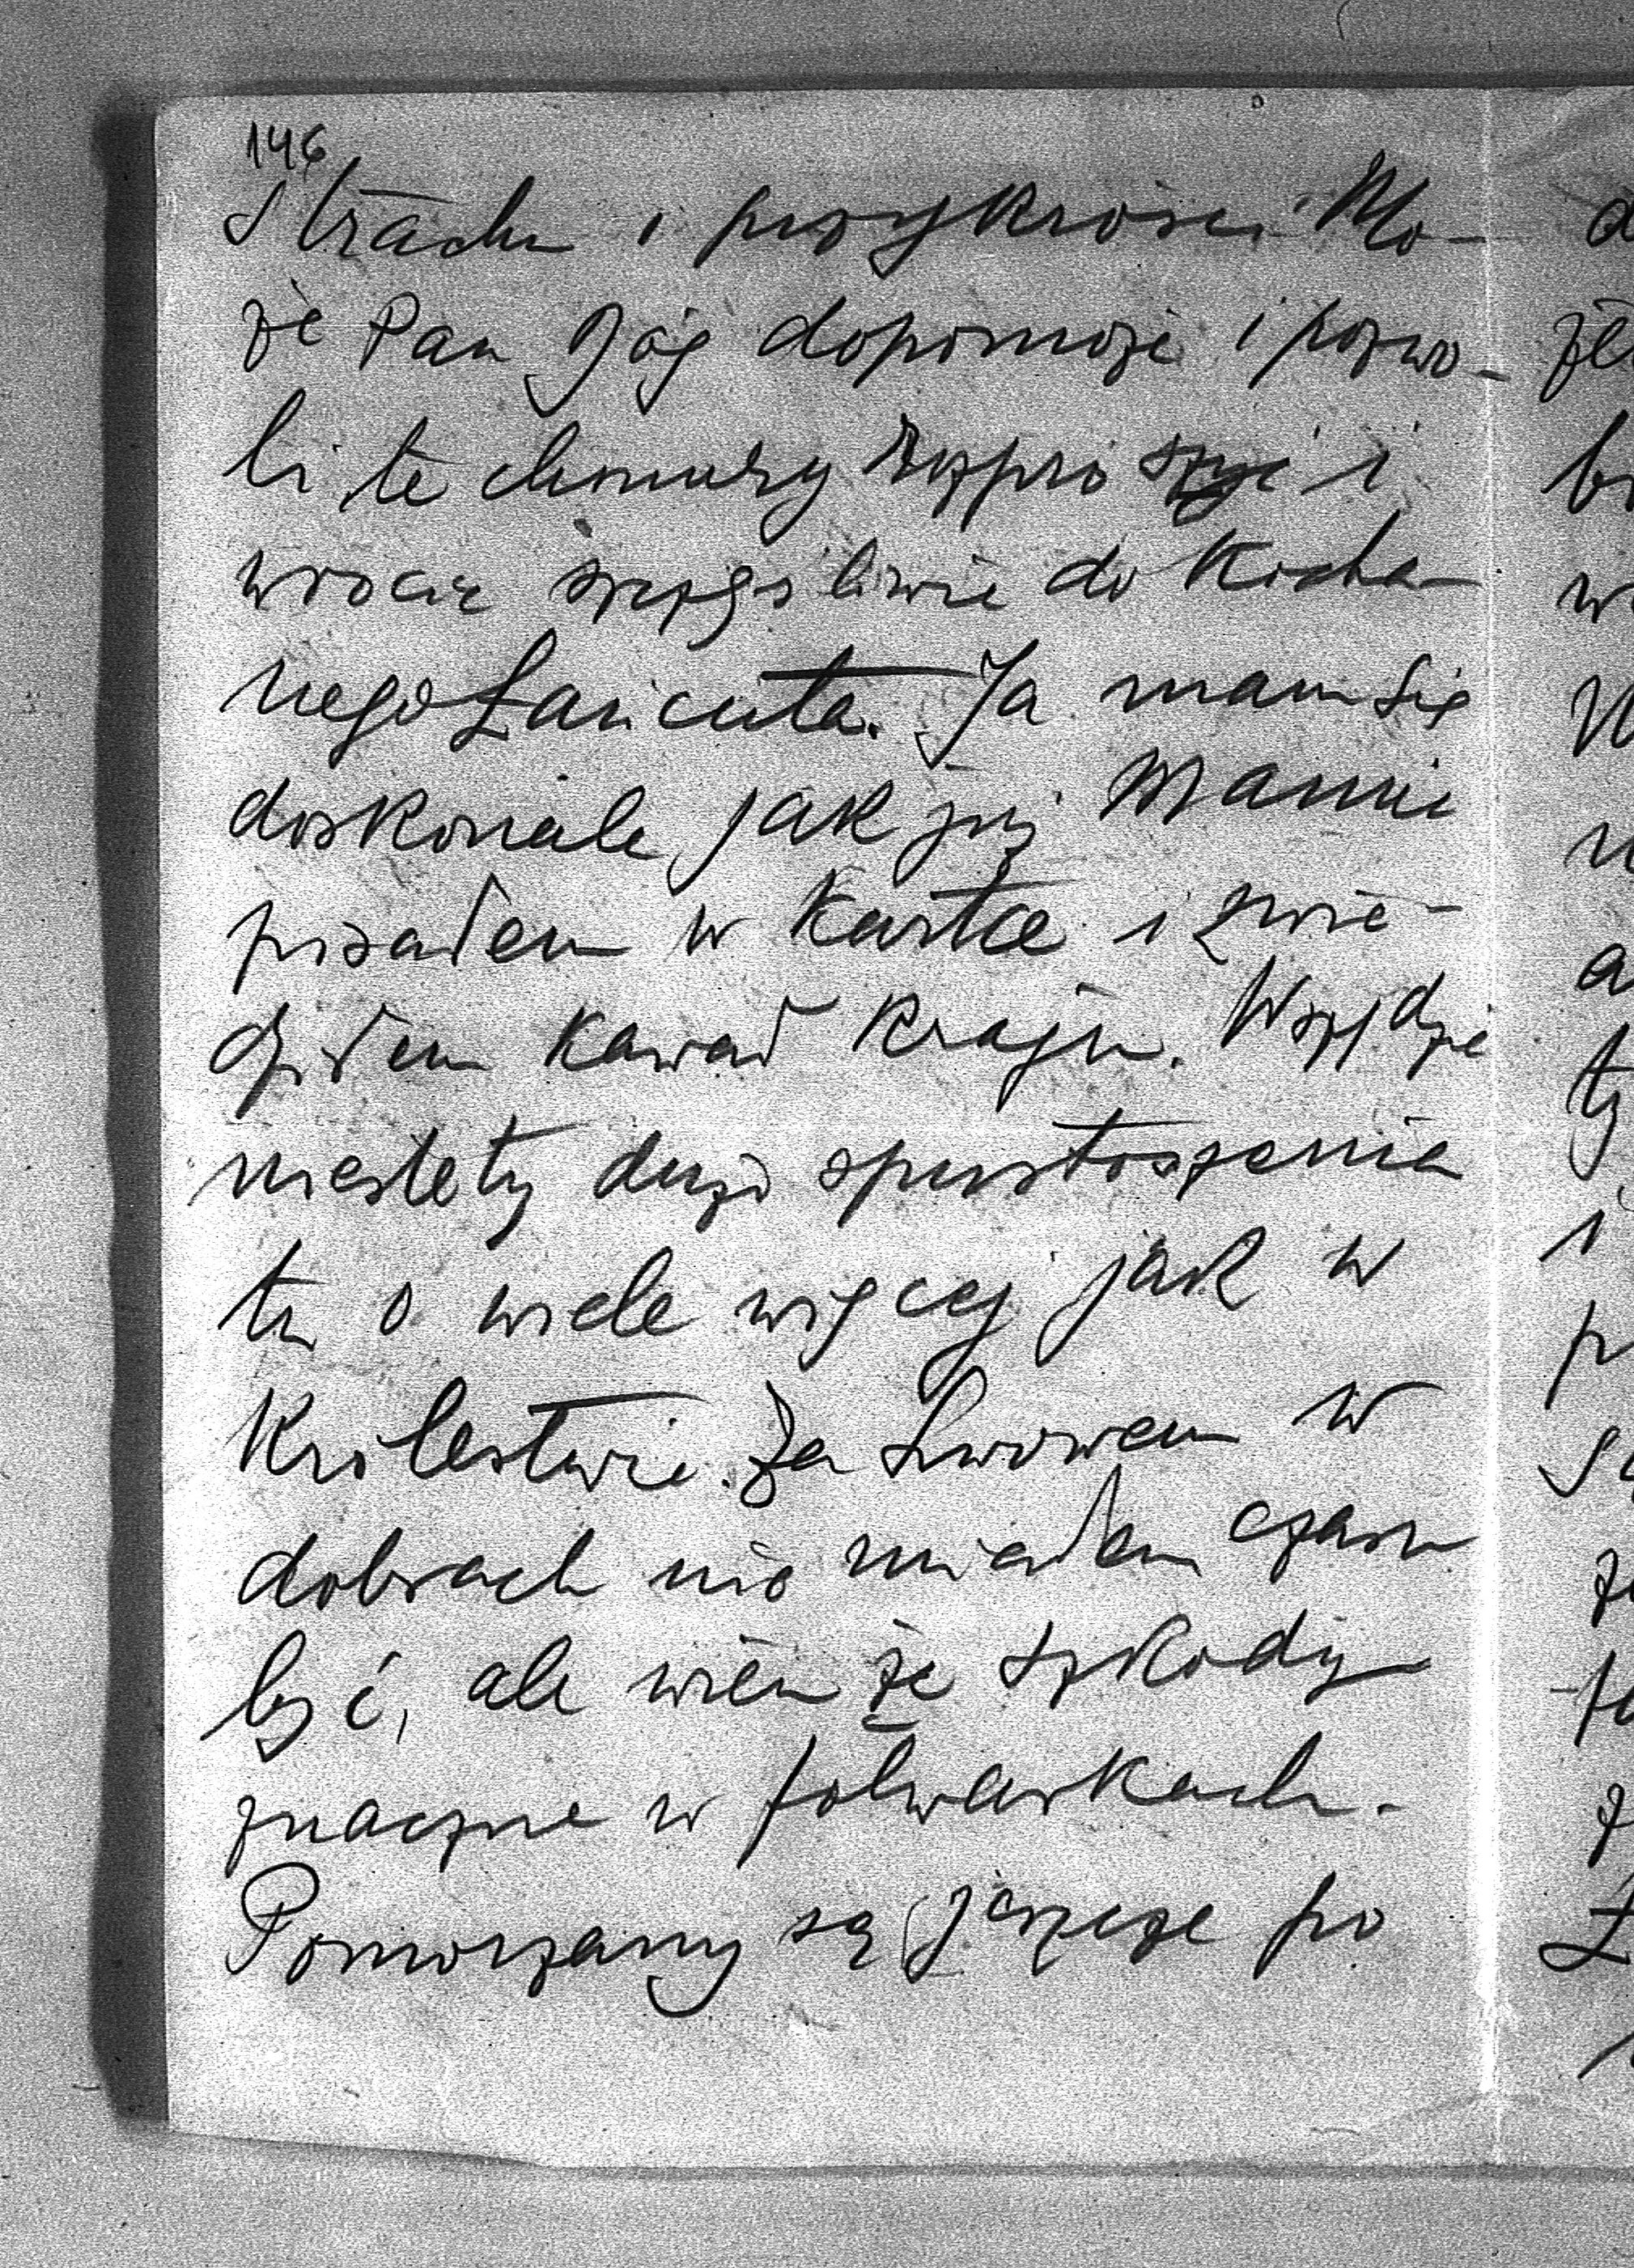 146
Strachu i przykrości. Mo-
że Pan Bóg dopomoże i pozwo-
li te chmury rozproszyć i
wrócić szczęśliwie do Kocha-
nego Łańcuta. Ja mam się
doskonale jak już Mamie
pisałem w Kartce i zwie-
dziłem kawał Kraju. Wszędzie
niestety dużo spustoszenia
tu o wiele więcej jak w
Królestwie. Za Lwowem w
dobrach nie miałem czasu
być, ale wiem że szkody
znaczne w folwarkach.
Pomorzany są jeszcze po